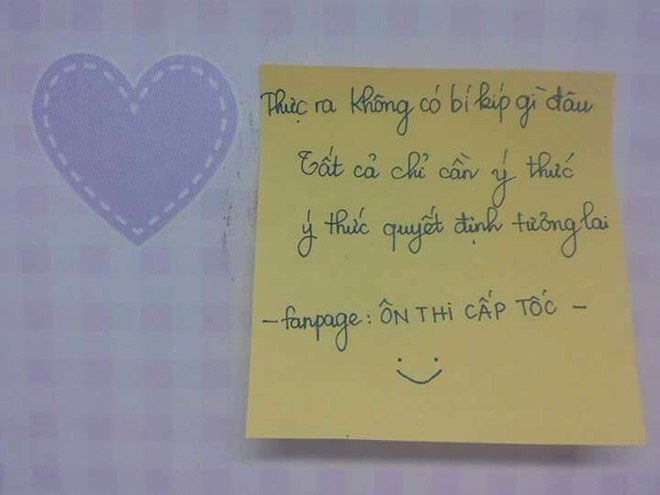 Thực ra không có bí kíp gì đâu
Tất cả chỉ cần ý thức
ý thức quyết định tương lai
- fanpage: ÔN THI CẤP TỐC -